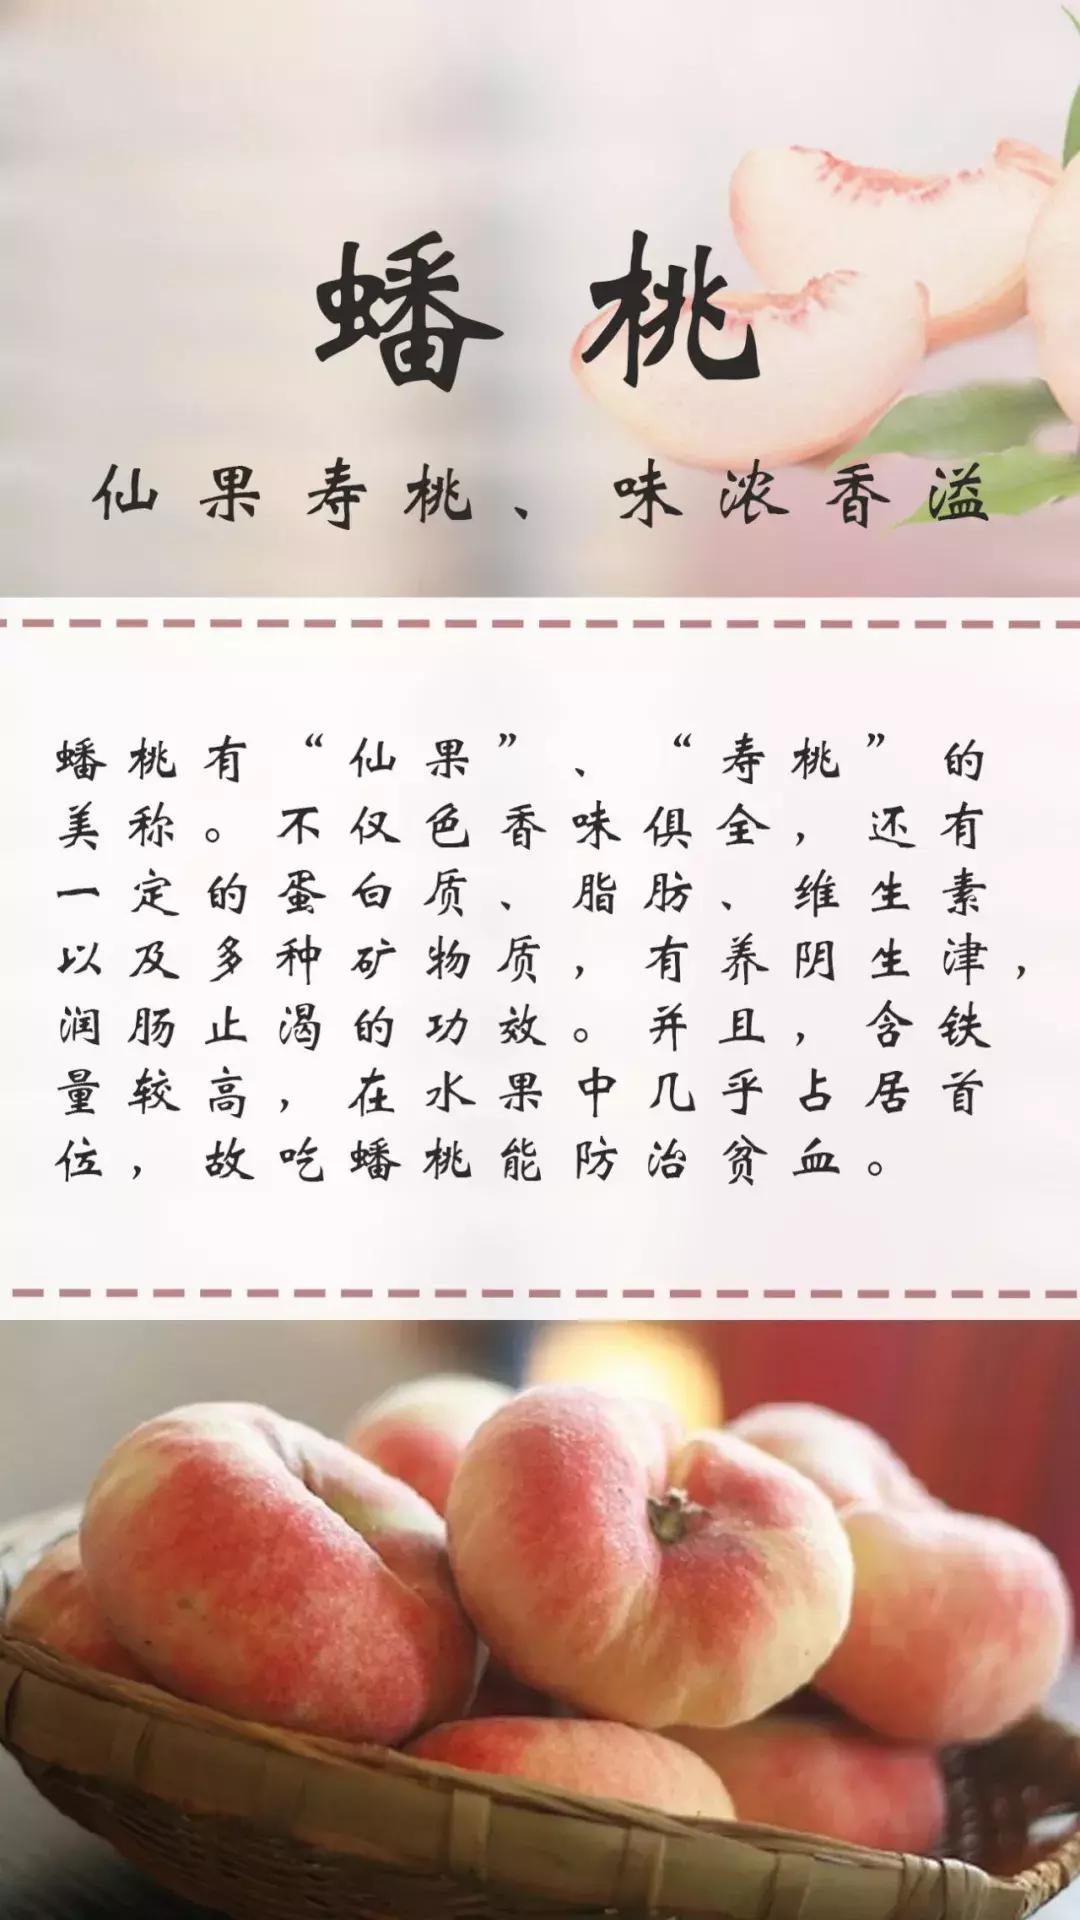 蟠桃
仙果寿桃、味浓香溢
蟠桃有“仙果”、“寿桃”的
美称。不仅色香味俱全，还有
一定的蛋白质、脂肪、维生素
以及多种矿物质，有养阴生津，
润肠止渴的功效。并且，含铁
量较高，在水果中几乎占居首
位，故吃蟠桃能防治贫血。